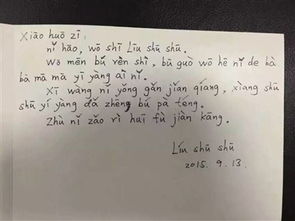 Xiǎo huǒ zi:
nǐ hǎo, wǒ shì Liú shū shu.
Wǒ mēn bú rèn shi, bú guò wǒ hé nǐ de bà
bà mā ma yī yàng ài nǐ.
Xī wàng nǐ yǒng gǎn jiān qiáng, xiàng shū
shu yí yàng dǎ zhēn bú pà téng.
Zhù nǐ zǎo rì huī fù jiàn kāng.
Liú shū shu
2015. 9. 13.